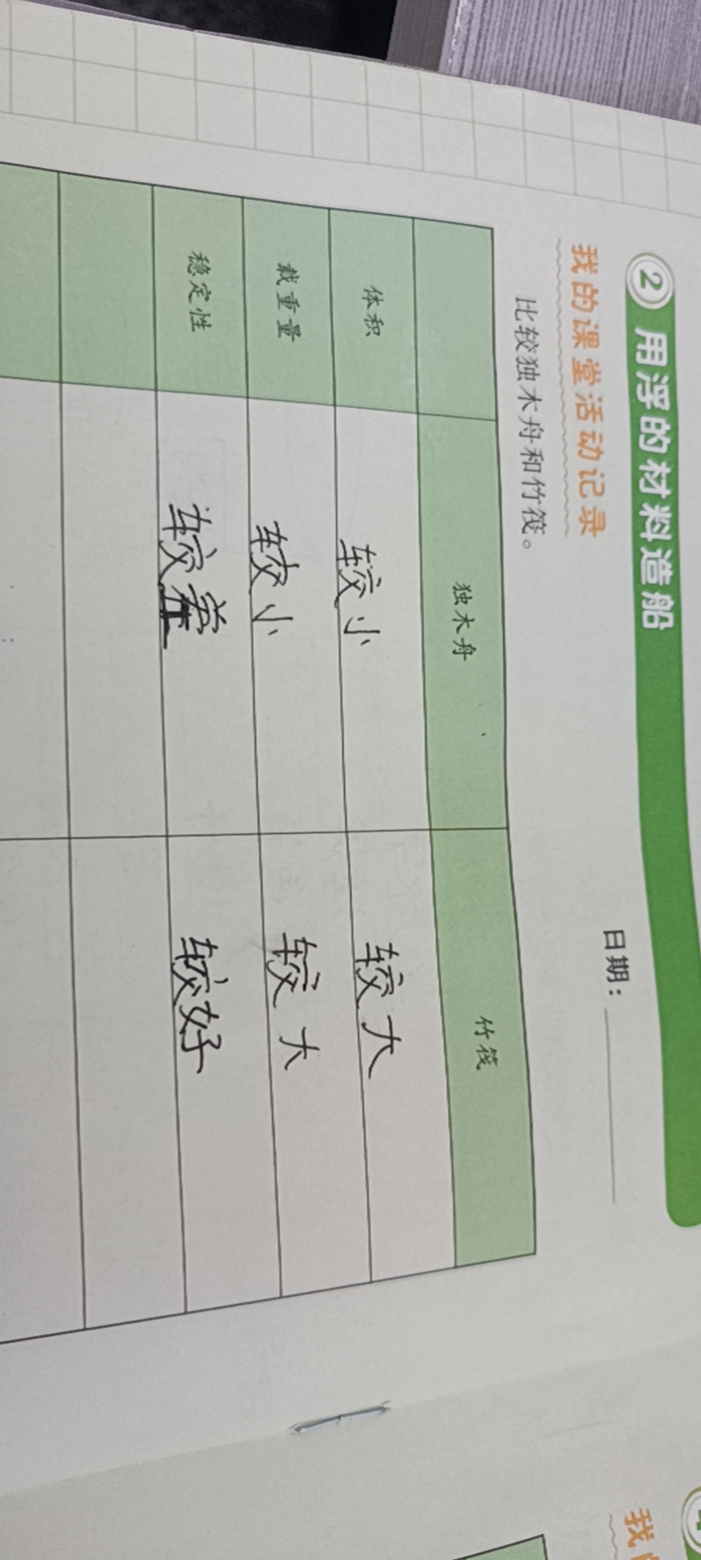 2 用浮的材料造船
日期：
我的课堂活动记录
比较独木舟和竹筏。
独木舟 竹筏
体积 较小 较大
载重量 较小 较大
稳定性 较差 较好
我